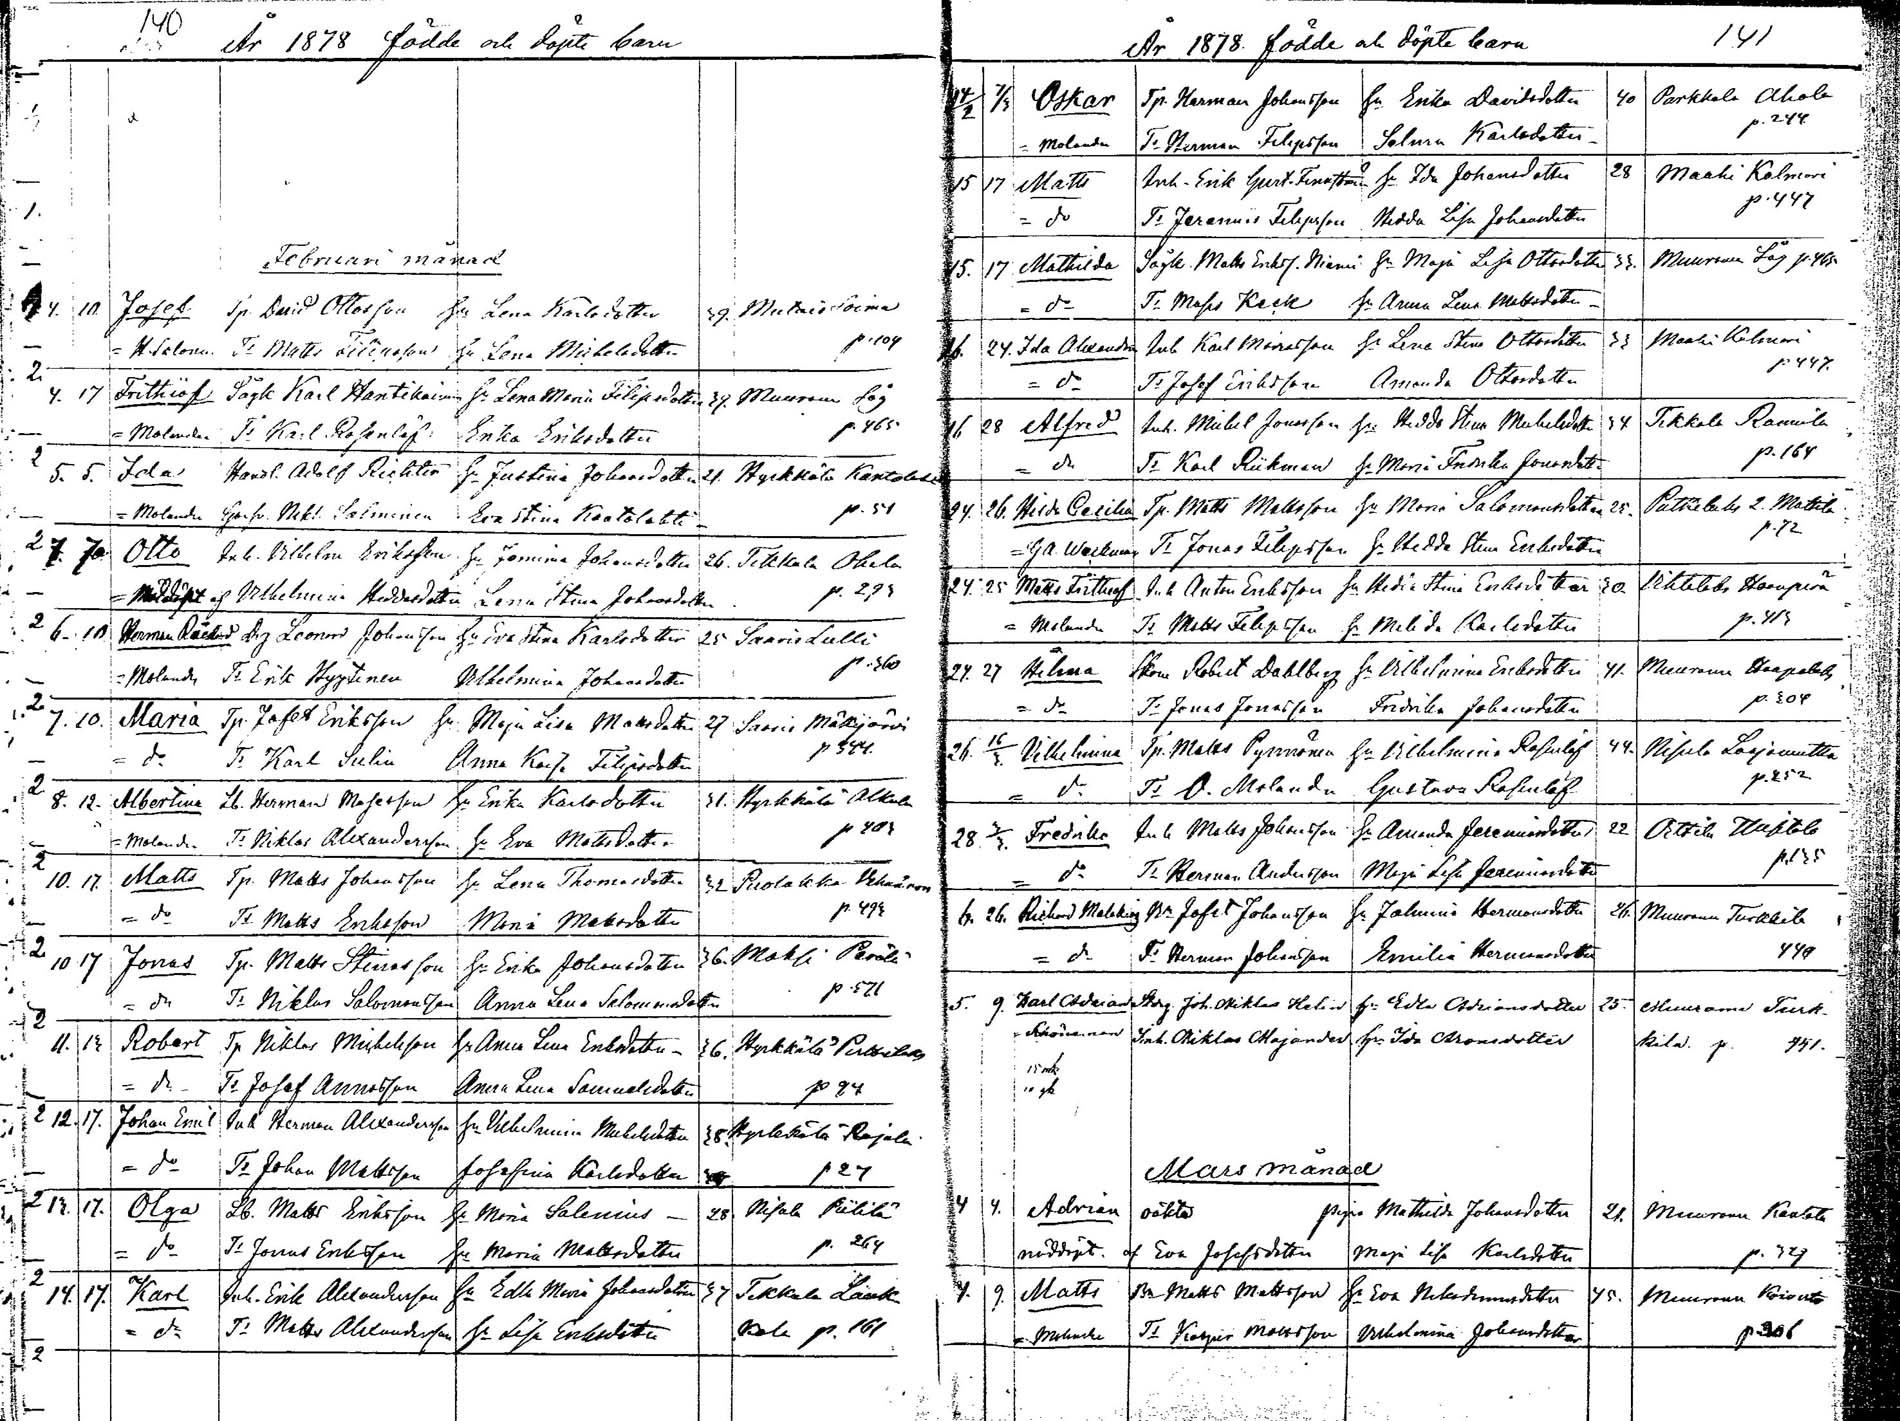 140
År 1878 födde och döpte barn
Februari månad
4. 10. Josef Tp. David Ottosson hu Lena Karlsdotter 39. Muurais Soima
= H. Salonen Ts Matts Filipsson hu Lena Michelsdotter p. 104
4. 17 Frithiof Sågk Karl Hantikainen hu Lena Maria Filipsdotter 39. Muurame Såg
= Molander Ts Karl Rosenlöf Erika Eriksdotter p. 465
5. 5. Ida Handl. Adolf Richter hu Justina Johansdotter 21. Hyrkkälä Kantola
= Molander Nikl. Salminen Eva Stina p. 51
7. Otto Inh. Vilhelm Eriksson hu Johansdotter 26. Tikkala Ohela
= Nöddöpt af Vilhelmina Heddasdotter Lena Stina Johansdotter p. 293
6. 10. Herman Rickard Drg Leonard Johansson hu Eva Stina Karlsdotter 25 Saaris Lulli
= Molander Ts Erik Hyytinen Vilhelmina Johansdotter p. 360
7. 10. Maria Tp. Jafet Eriksson hu Maja Lisa Mattsdotter 27 Saaris Mäkijärvi
= do Ts Karl Sulin Anna Kaisa Filipsdotter p 344
8. 12. Albertina Lb. Herman Mosesson hu Erika Karlsdotter 31. Hyrkkälä Alkula
= Molander Ts Niklas Alexandersson hu Eva Mattsdotter p 403
10. 17. Matts Tp. Matts Johansson hu Lena Thomasdotter 32 Puolakka
= do Ts Matts Eriksson Maria Mattsdotter p. 493
10 17 Jonas Tp. Matts Stenasson hu Erika Johansdotter 36. Maksi Perälä
= do Ts Niklas Salomonsson Anna Lena Salomonsdotter p. 571
11. 13 Robert Tp Niklas Michelsson hu Anna Lena Eriksdotter 36. Hyrkkälä
= do Ts Josef Annasson Anna Lena Samuelsdotter p 94
12. 17. Johan Emil Inh Herman Alexandersson hu Vilhelmina Michelsdotter 38. Hyrkkälä Rajala
= do Ts Johan Mattsson Josefina Karlsdotter p 27
13. 17. Olga Lb. Matts Eriksson hu Maria Salenius 28. Nisula Piililä
= do Ts Jonas Eriksson hu Maria Mattsdotter p. 264
14. 17. Karl Inh. Erik Alexandersson hu Edla Maria Johansdotter 37 Tikkala Lauk
= do Ts Matts Alexandersson hu Lisa Eriksdotter kala p. 161
År 1878. födde och döpte barn 141
14/2 7/3 Oskar Tp. Herman Johansson hu Erika Davidsdotter 40 Parkkola Ahola
= Molander Ts Herman Filipsson Selma Karlsdotter p. 244
15 17 Matts Inh. Erik Gust. hu Ida Johansdotter 28 Maahi Kalmari
= do Ts Jeremias Filipsson Hedda Lisa Johansdotter p. 447
15. 17 Mathilda Sågk. Matts Erikss. Niemi hu Maja Lisa Ottosdotter 33. Muurame Såg p. 465
= do Ts Moses Keck hu Anna Lena Mattsdotter
16. 24. Ida Alexandra Inh Karl hu Lena Stina Ottosdotter 33 Maahi Kalmari
= do Ts Josef Eriksson Amanda Ottosdotter p 447.
16 28 Alfred Inh. Michel Jonasson hu Hedda Stina Michelsdotter 34 Tikkala Rannila
= do Ts Karl Riikman hu Maria Fredrika Jonasdotter p. 164
24. 26. Hilda Cecilia Tp. Matts Mattsson hu Maria Salomonsdotter 25. Putkilaks 2. Mattila
= G A. Weckman Ts Jonas Filipsson hu Hedda Stina Eriksdotter p. 72
24. 25 Matts Frithiof Inh Anton Eriksson hu Hedda Stina Eriksdotter 30. Vihtalaks Haapaperä
= Molander Ts Matts Filipsson hu Melida Karlsdotter p. 413
24. 27 Hilma Skom Robert Dahlberg hu Vilhelmina Eriksdotter 41. Muurame Haapalaks
= do Ts Jonas Jonasson Fredrika Johansdotter p. 304
26. 16/3 Vilhelmina Tp. Matts Pynnönen hu Vilhelmina Rosenlöf 44. Nisula Laajamutka
= do Ts O. Molander Gustava Rosenlöf p. 252
28 3/3 Fredrika Inh Matts Johansson hu Amanda Jeremiasdotter 22
= do Ts Herman Andersson Maja Lisa Jeremiasdotter p. 135
6. 26. Richard Malakias Bn Jafet Johansson hu Johanna Hermansdotter 26. Muurame Turkkila
= do Ts Herman Johansson Emilia Hermansdotter 449
5. 9. Karl Adrian Joh. Niklas Helin hu Edla Adriansdotter 25. Muurame Turk-
Schöneman Inh. Niklas Majander hu Ida Aronsdotter kila. p. 451.
Mars månad
4 4. Adrian oäkta piga Mathilda Johansdotter 21. Muurame Kautola
nöddöpt. af Eva Josefsdotter Maja Lisa Karlsdotter p. 327
4. 9. Matts Bn Matts Mattsson hu Eva Nikodemusdotter 45. Muurame
= Molander Ts Kasper Mattsson Vilhelmina Johansdotter p. 306